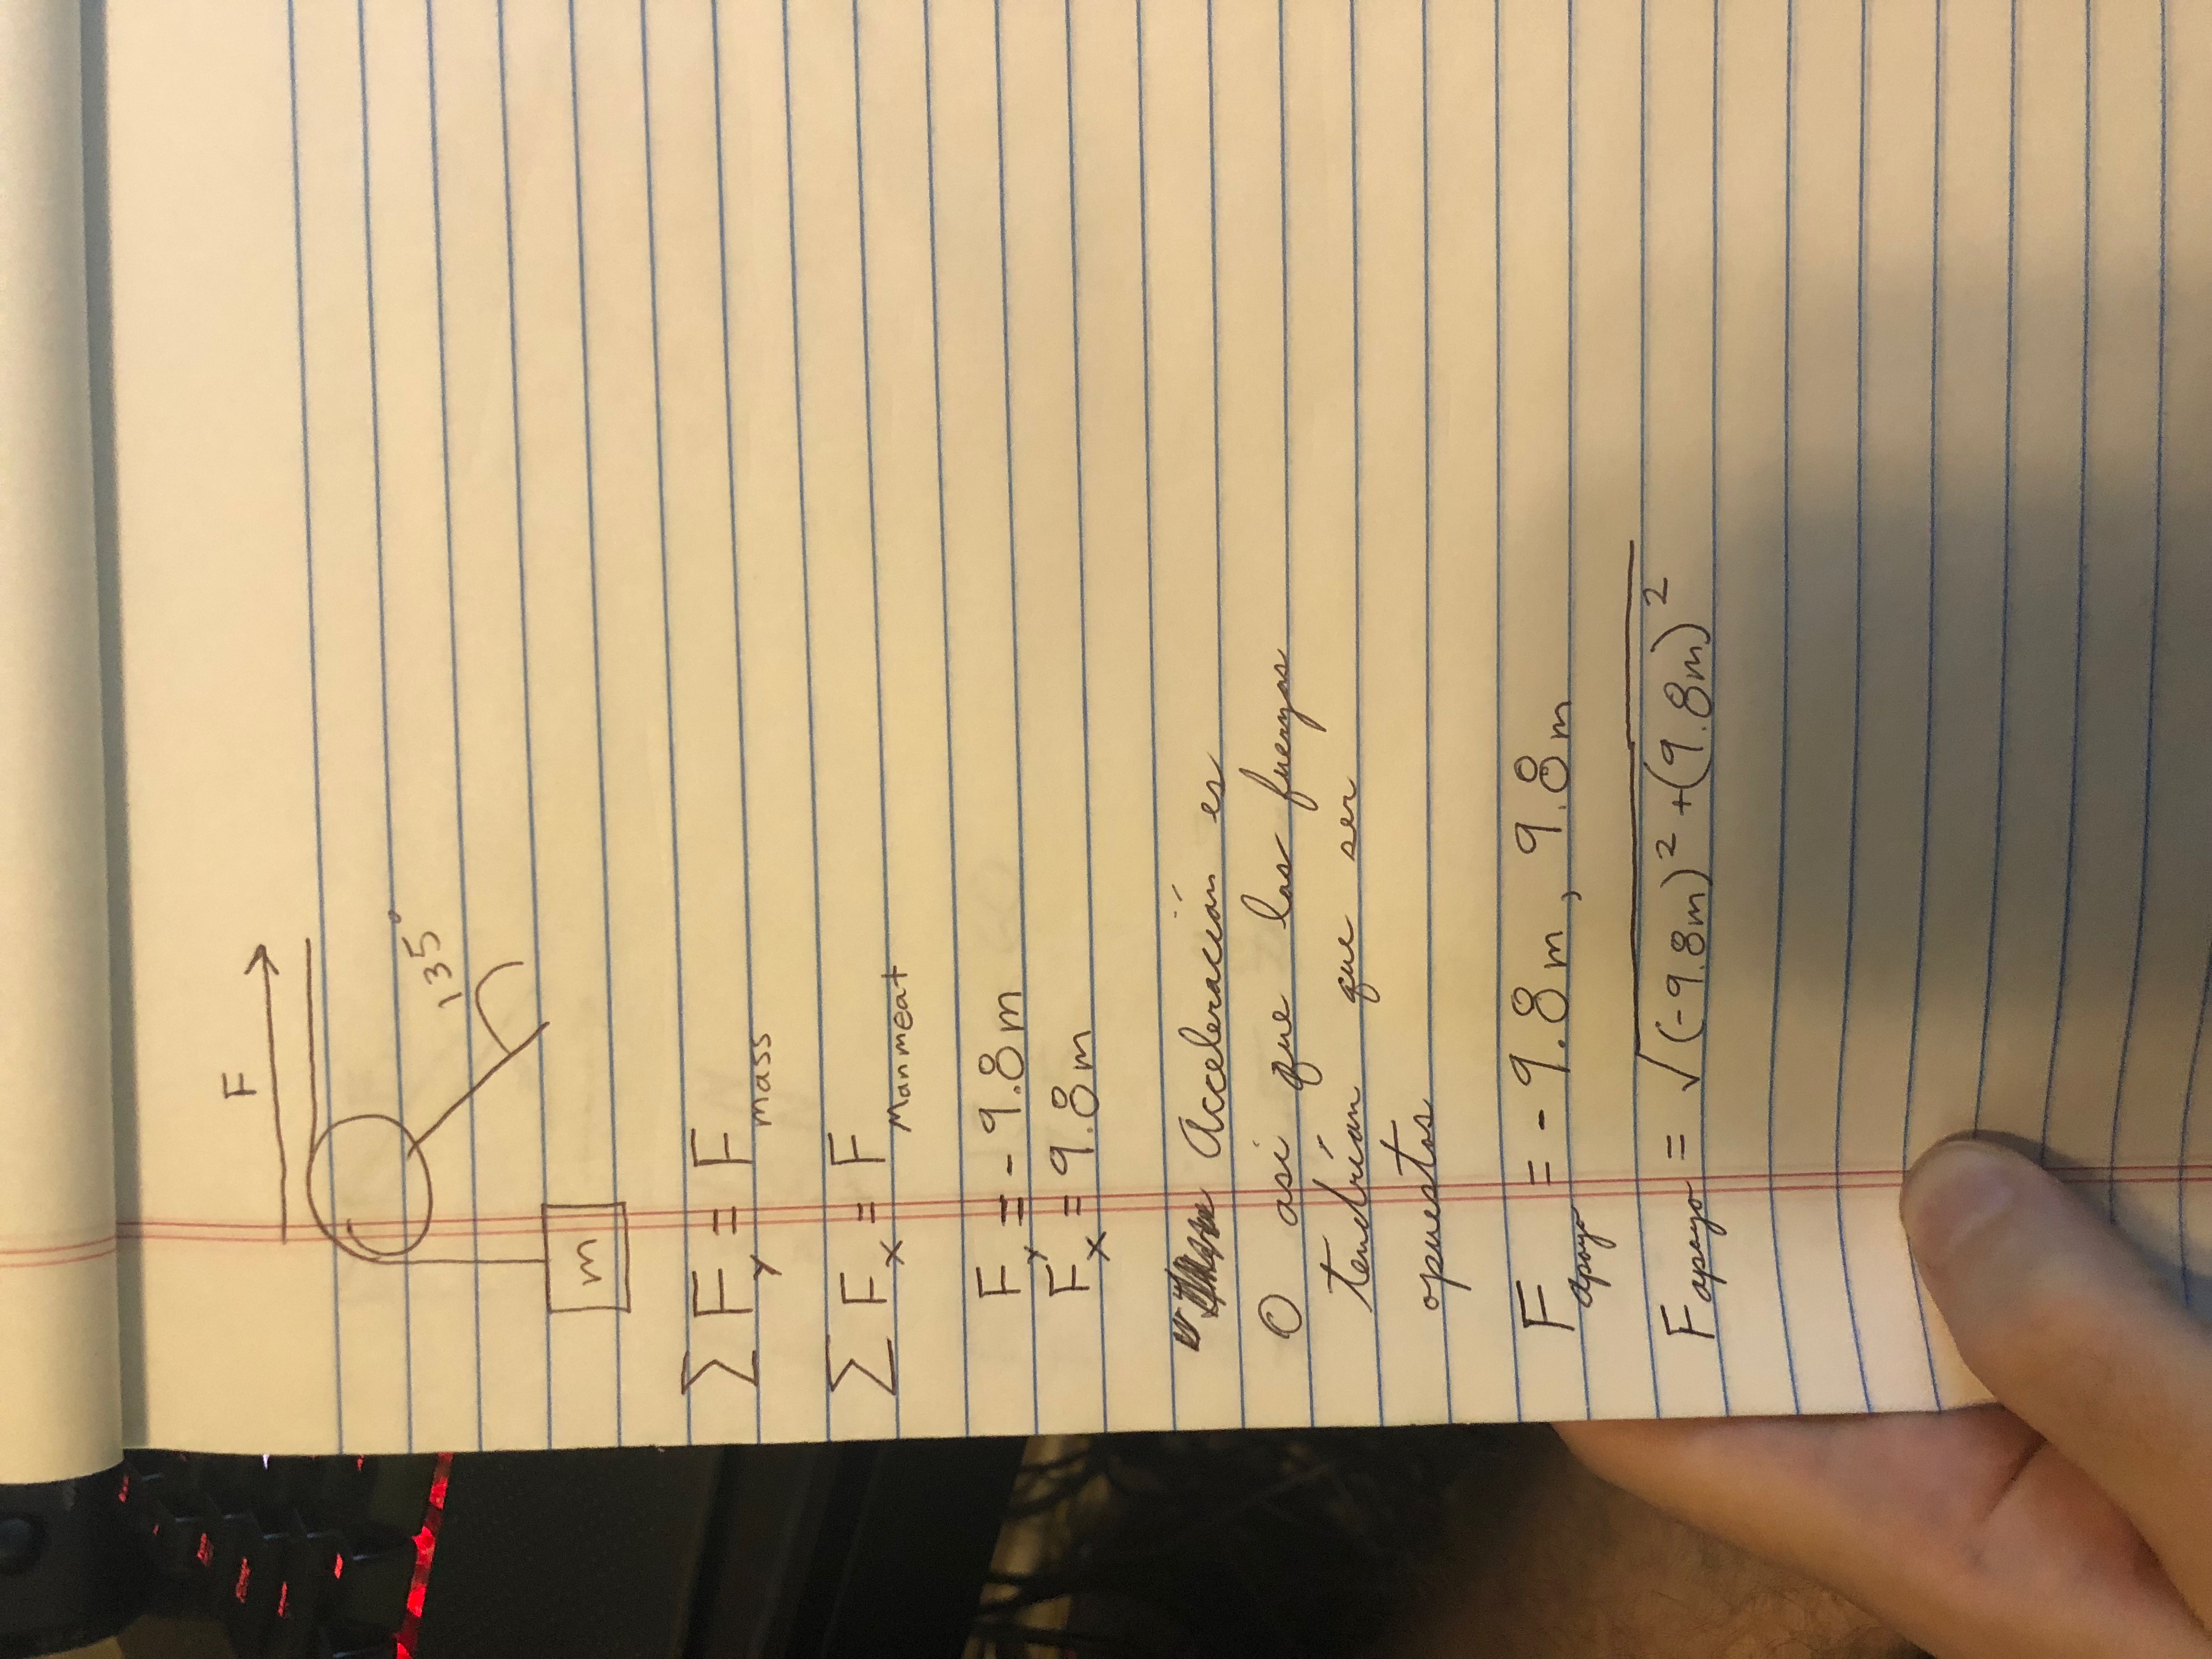 F
135°
m
ΣF_y = F_mass
ΣF_x = F_Manmeat
F_y = -9.8m
F_x = 9.8m
" Acceleración es
0 asi que las fuerzas
tendrían que ser
opuestas
F_apoyo = -9.8m, 9.8m
F_apoyo = √((-9.8m)² + (9.8m)²)